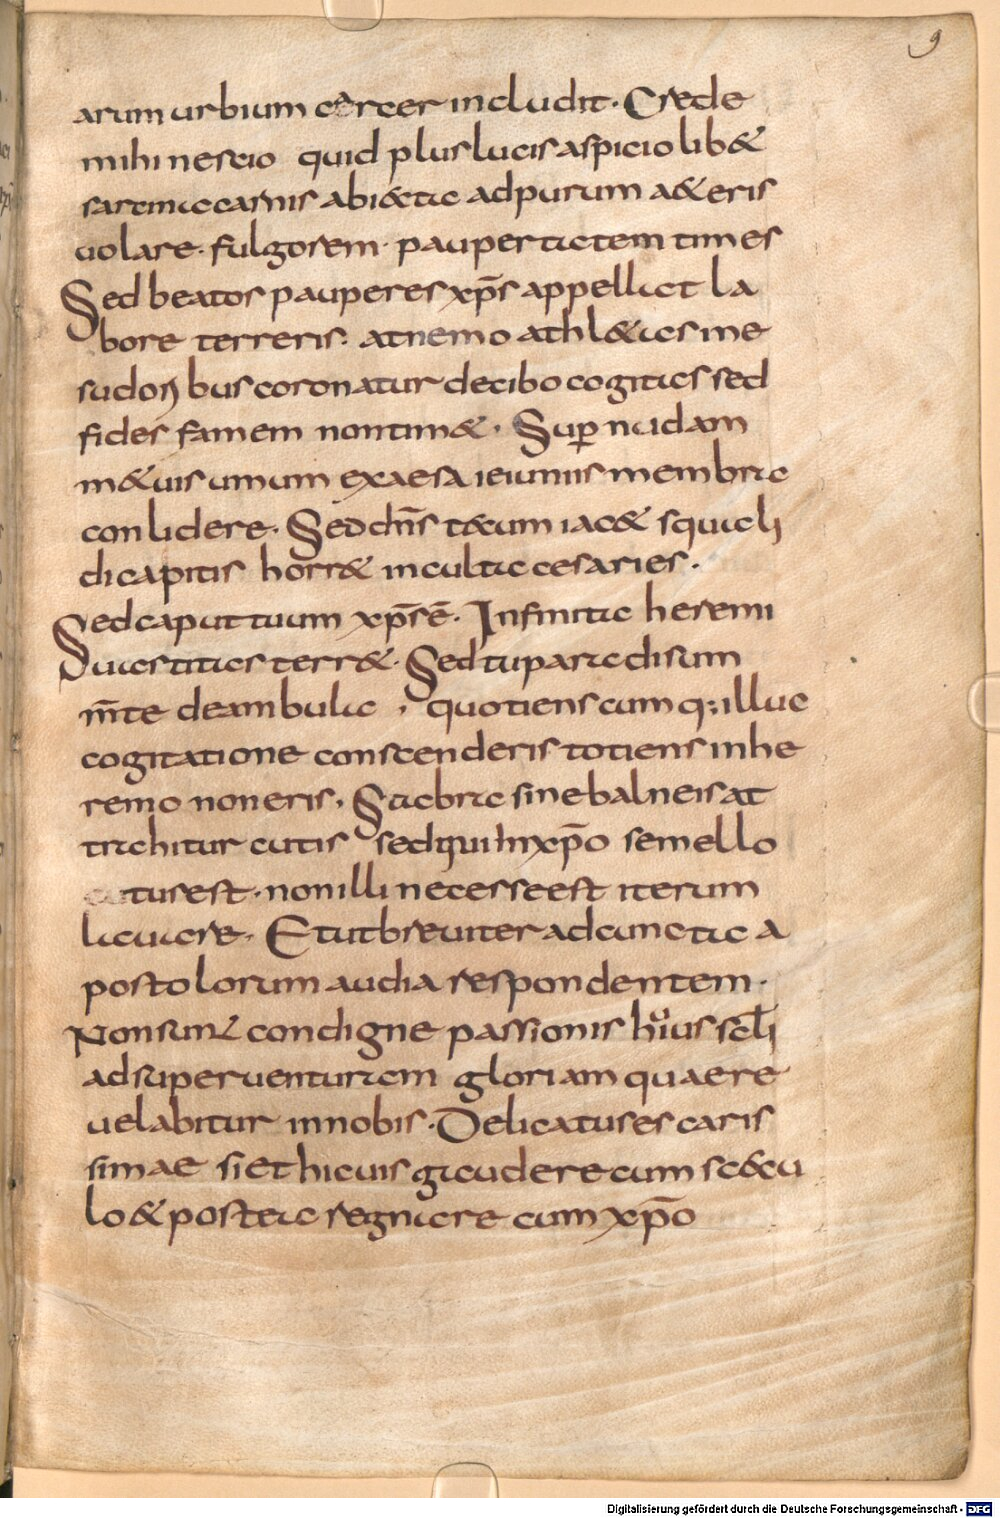 9
arum urbium carcer includit. Crede
mihi nescio quid plus lucis aspicio lib&
sarcina carnis abi&cta ad purum a&eris
uolare. fulgorem. paupertatem times
Sed beatos pauperes xp̄s appellat la
bore terreris. at nemo athl&as ine
sudoribus coronatur de cibo cogitas sed
fides famem non tim&. Sup̱ nudam
m&uis umum exaesa ieiuniis membra
conlidere. Sed dn̄s tecum iac& squali
di capitis horr& inculta cesaries.
Sed caput tuum xp̄s ē. Infinita heremi
uastitas terr&. Sed tu paradisum
m̄te deambula, quotienscumq; illuc
cogitatione conscenderis totiens in he
remo non eris. Scabra sine balneis at
trahitur cutis sed qui in xp̄o semel lo
tus est. non illi necesse est iterum
lauare. Et ut breuiter ad cuncta a
postolorum audia respondentem.
Non sunt condigne passionis huius sc̄li
ad superuenturam gloriam quae re
uelabitur in nobis. Delicatus es caris
simae si et hic uis gaudere cum s&cu
lo & postea regnare cum xp̄o
Digitalisierung gefördert durch die Deutsche Forschungsgemeinschaft - DFG